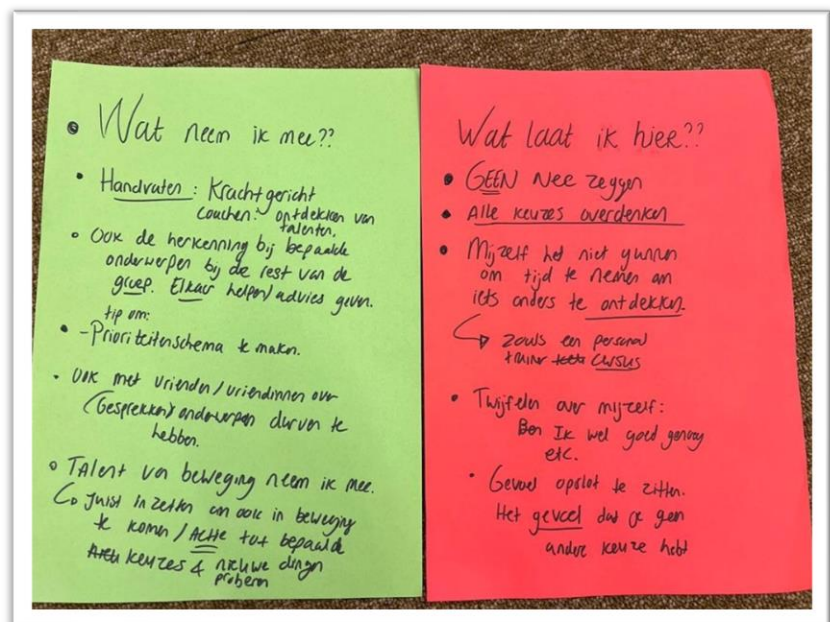 Wat neem ik mee??
Handvaten: Krachtgericht
coachen: ontdekken van
talenten.
Ook de herkenning bij bepaalde
onderwerpen bij de rest van de
groep. Elkaar helpen/advies geven.
tip om:
-Prioriteitenschema te maken.
Ook met vrienden/vriendinnen over
(Gesprekken) onderwerpen durven te
hebben.
Talent van beweging neem ik mee.
Juist inzetten om ook in beweging
te komen/Actie tot bepaalde
keuzes & nieuwe dingen
proberen
Wat laat ik hier??
GEEN Nee zeggen
Alle keuzes overdenken
Mijzelf het niet gunnen
om tijd te nemen om
iets anders te ontdekken.
zoals een personal
trainer cursus
Twijfelen over mijzelf:
Ben Ik wel goed genoeg
etc.
Gevoel opslot te zitten.
Het gevoel dat je geen
andere keuze hebt